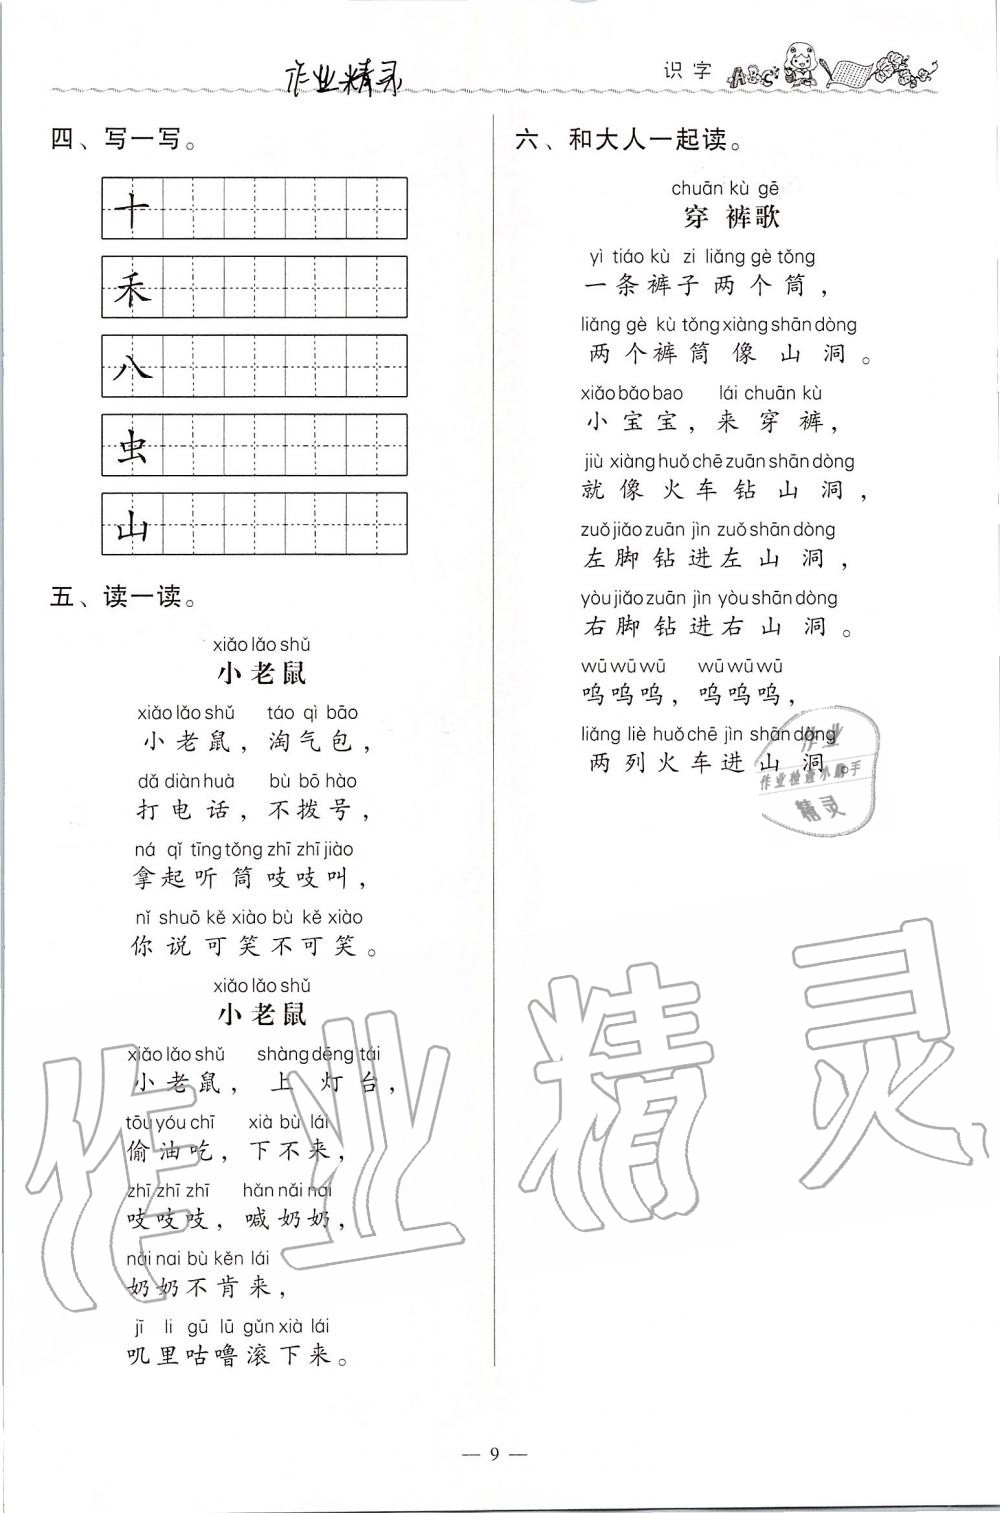 作业精灵
识字
ABC
四、写一写。
十
禾
八
虫
山
五、读一读。
xiǎo lǎo shǔ
小老鼠
xiǎo lǎo shǔ táo qì bāo
小老鼠，淘气包，
dǎ diàn huà bù bō hào
打电话，不拨号，
ná qǐ tīng tǒng zhī zhī jiào
拿起听筒吱吱叫，
nǐ shuō kě xiào bù kě xiào
你说可笑不可笑。
xiǎo lǎo shǔ
小老鼠
xiǎo lǎo shǔ shàng dēng tái
小老鼠，上灯台，
tōu yóu chī xià bù lái
偷油吃，下不来，
zhī zhī zhī hǎn nǎi nai
吱吱吱，喊奶奶，
nǎi nai bù kěn lái
奶奶不肯来，
jī li gū lū gǔn xià lái
叽里咕噜滚下来。
六、和大人一起读。
chuān kù gē
穿裤歌
yì tiáo kù zi liǎng gè tǒng
一条裤子两个筒，
liǎng gè kù tǒng xiàng shān dòng
两个裤筒像山洞。
xiǎo bǎo bao lái chuān kù
小宝宝，来穿裤，
jiù xiàng huǒ chē zuān shān dòng
就像火车钻山洞，
zuǒ jiǎo zuān jìn zuǒ shān dòng
左脚钻进左山洞，
yòu jiǎo zuān jìn yòu shān dòng
右脚钻进右山洞。
wū wū wū wū wū wū
呜呜呜，呜呜呜，
liǎng liè huǒ chē jìn shān dòng
两列火车进山洞。
作业
作业检查小助手
精灵
作业精灵
— 9 —